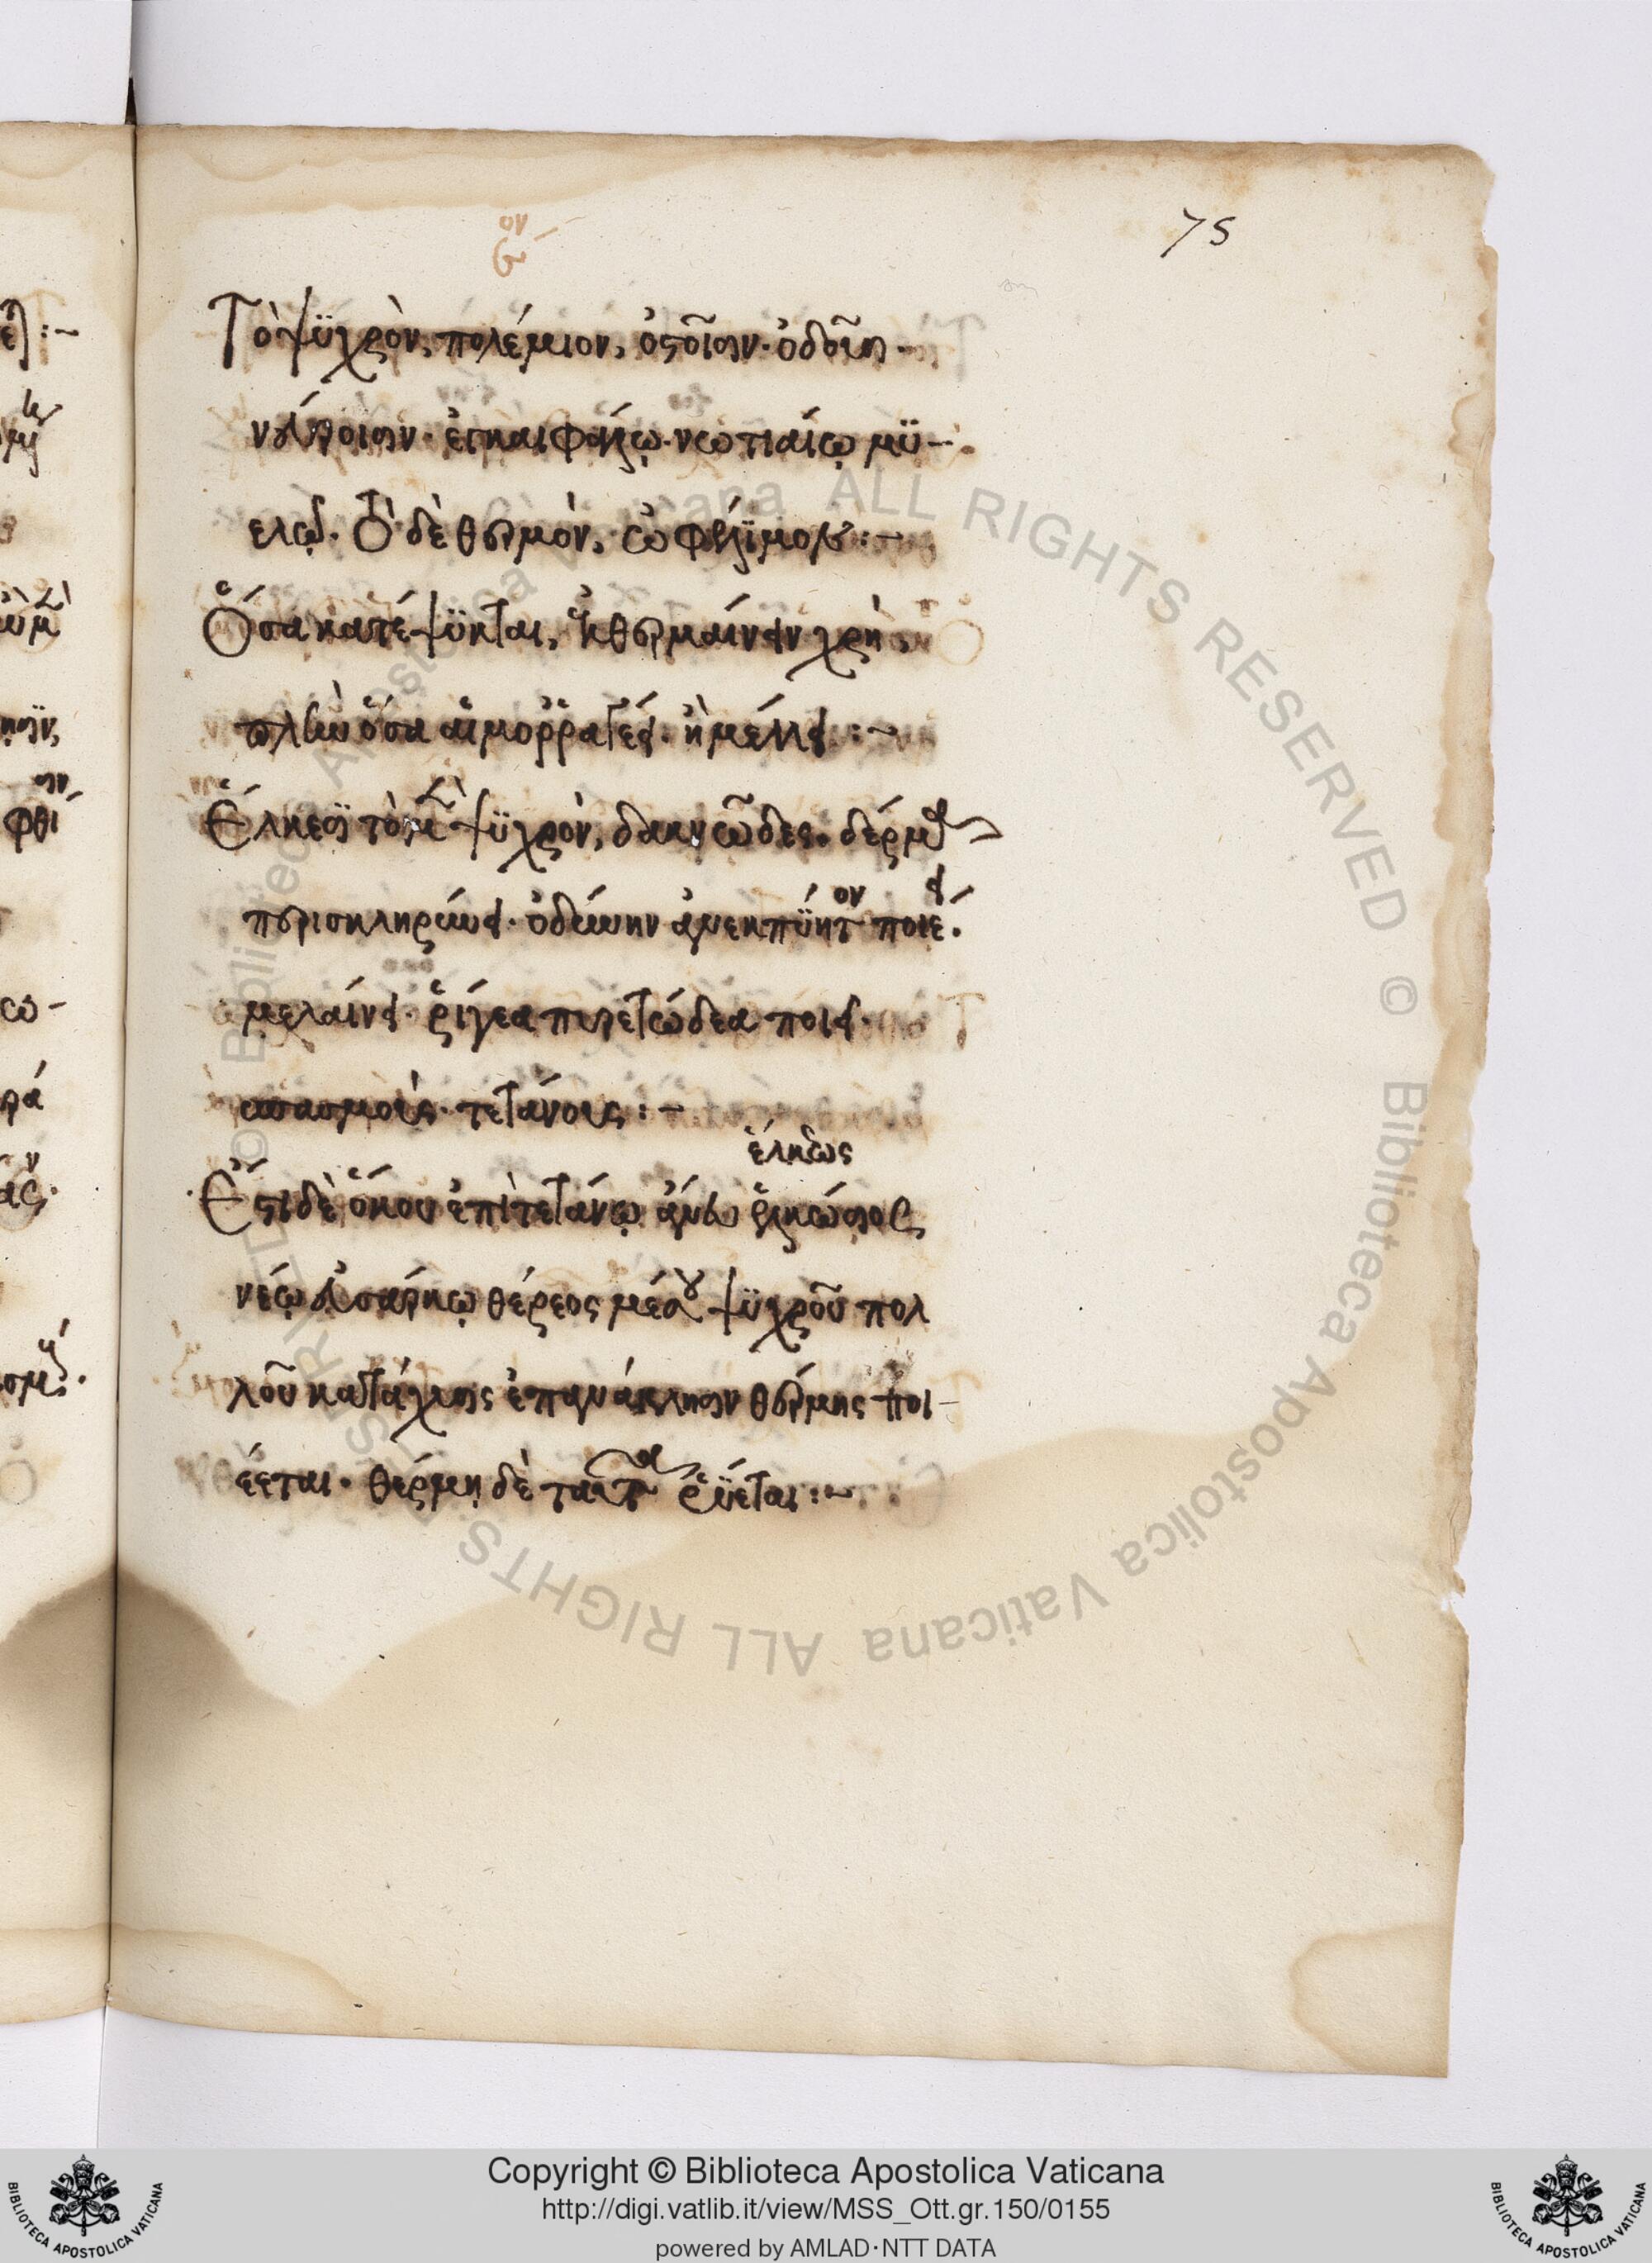 75
Τὸ ψϋχρὸν, πολέμιον, ὀστοῖσιν· ὀδοῦσι·
νεύροισιν· ἐγκαιφάλῳ· νωτιαίῳ μϋ-
ελῷ. Τὸ δὲ θερμὸν, ὠφέλϊμον :-
Ὅσα κατέψϋκται, ἐκθερμαίνειν χρὴ,
πλὴν ὅσα αἱμορραγέει· ἢ μέλλει :-
Ἕλκεσϊ τὸ μὲν ψϋχρὸν, δακνῶδες. δέρμα
περισκληρύνει· ὀδύνην ἀνεκπύητον ποιέει.
μελαίνει· ῥίγεα πυρετώδεα ποιεῖ·
σπασμοὺς· τετάνους :-
ἕλκεος
Ἔστι δὲ ὅκου ἐπὶ τετάνῳ ἄνευ
νέῳ εὐσάρκῳ θέρεος μέσου ψϋχροῦ πολ
λοῦ κατάχυσις ἐπανάκλησιν θέρμης ποι-
έεται· θέρμη δὲ ταῦτα ῥύεται :-
© Biblioteca Apostolica Vaticana ALL RIGHTS RESERVED © Biblioteca Apostolica Vaticana ALL RIGHTS RESERVED
Copyright © Biblioteca Apostolica Vaticana
http://digi.vatlib.it/view/MSS_Ott.gr.150/0155
powered by AMLAD·NTT DATA
BIBLIOTECA APOSTOLICA VATICANA
BIBLIOTECA APOSTOLICA VATICANA